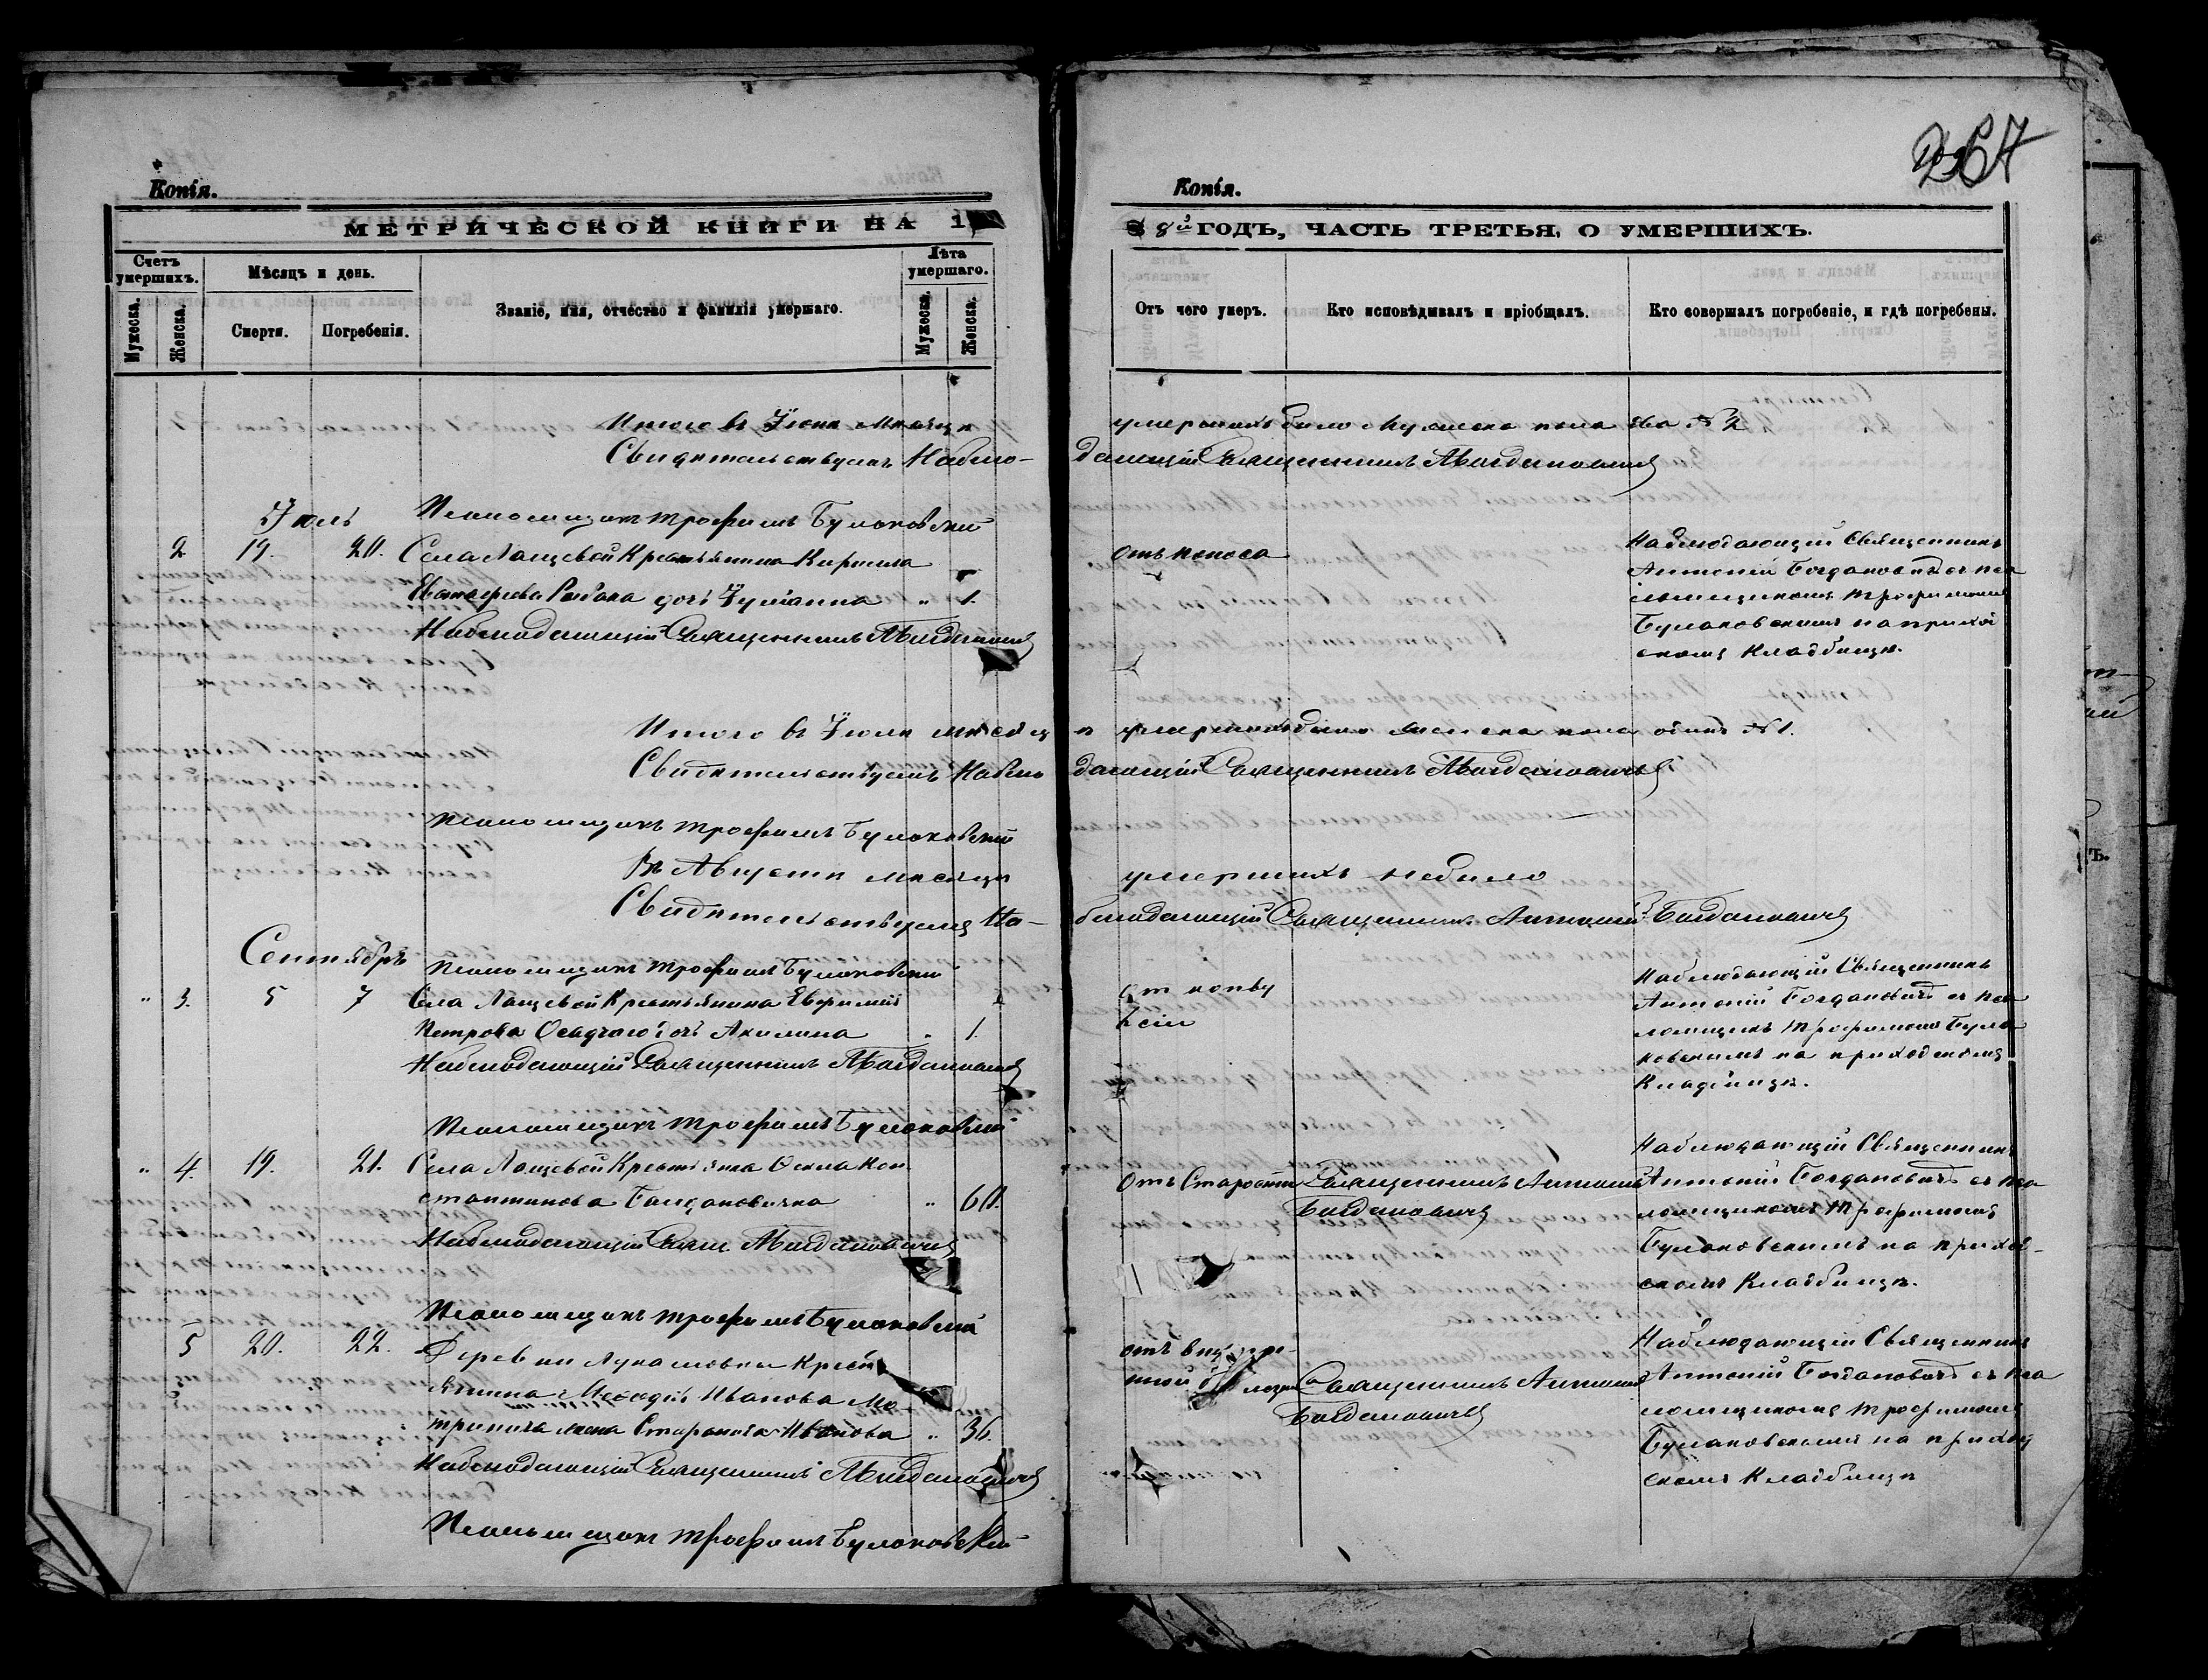 267
Копія.
МЕТРИЧЕСКОЙ КНИГИ НА 1
Счетъ умершихъ.
Мужеска.
Женска.
Мѣсяцъ и день.
Смерти.
Погребенія.
Званіе, имя, отчество и фамилія умершаго.
Лѣта умершаго.
Мужеска.
Женска.
Итого въ Іюнѣ мѣсяцѣ
Свидѣтельствуемъ Наблю-
Псаломщикъ Трофимъ Булаковскій
Іюль
2 19. 20. Села Лащевой Крестьянина Кирилла
Евстафіева дочь Іуліанна " 1.
Наблюдающій Священникъ АБогдановичъ
Итого въ Іюлѣ мѣсяц
Свидѣтельствуемъ Наблю
Псаломщикъ Трофимъ Булаковскій
Въ Августѣ мѣсяцѣ
Свидѣтельствуемъ На-
Сентябрь
Псаломщикъ Трофимъ Булаковскій
" 3. 5 7 Села Лащевой Крестьянина Евфимія
Петрова Осадчого дочь Акилина " 1.
Наблюдающій Священникъ АБогдановичъ
Псаломщикъ Трофимъ Булаковскій
" 4. 19. 21. Села Лащевой Крестьянка Кон
стантинова " 60.
Наблюдающій Свящ. АБогдановичъ
Псаломщикъ Трофимъ Булаковскій
5 20. 22. Деревни Лукашовки Крест
янина Меѳодія Иванова
жена Иванова " 36.
Наблюдающій Священникъ АБогдановичъ
Псаломщикъ Трофимъ Булаковскій
Копія.
88й ГОДЪ, ЧАСТЬ ТРЕТЬЯ, О УМЕРШИХЪ.
Отъ чего умеръ.
Кто исповѣдывалъ и пріобщалъ.
Кто совершалъ погребеніе, и гдѣ погребены.
умершихъ было Мужеска пола два №2
дающій Священникъ АБогдановичъ
отъ поноса
Наблюдающій Священникъ
Антоній Богдановичъ съ пса
ломщикомъ Трофимомъ
Булаковскимъ на приход
скомъ Кладбищѣ.
ѣ умершихъ было женска пола одинъ №1.
дающій Священникъ АБогдановичъ
умершихъ небыло
блюдающій Священникъ Антоній Богдановичъ
Наблюдающій Священникъ
Антоній Богдановичъ съ пса
ломщикъ Трофимомъ Була
ковскимъ на приходскомъ
Кладбищѣ.
Отъ Старости
Священникъ Антоній
Богдановичъ
Наблюдающій Священникъ
Антоній Богдановичъ съ пса
ломщикомъ Трофимомъ
Булаковскимъ на приход-
скомъ Кладбищѣ.
Священникъ Антоній
Богдановичъ
Наблюдающій Священникъ
Антоній Богдановичъ съ пса
ломщикомъ Трофимомъ
Булаковскимъ на приход
скомъ Кладбищѣ